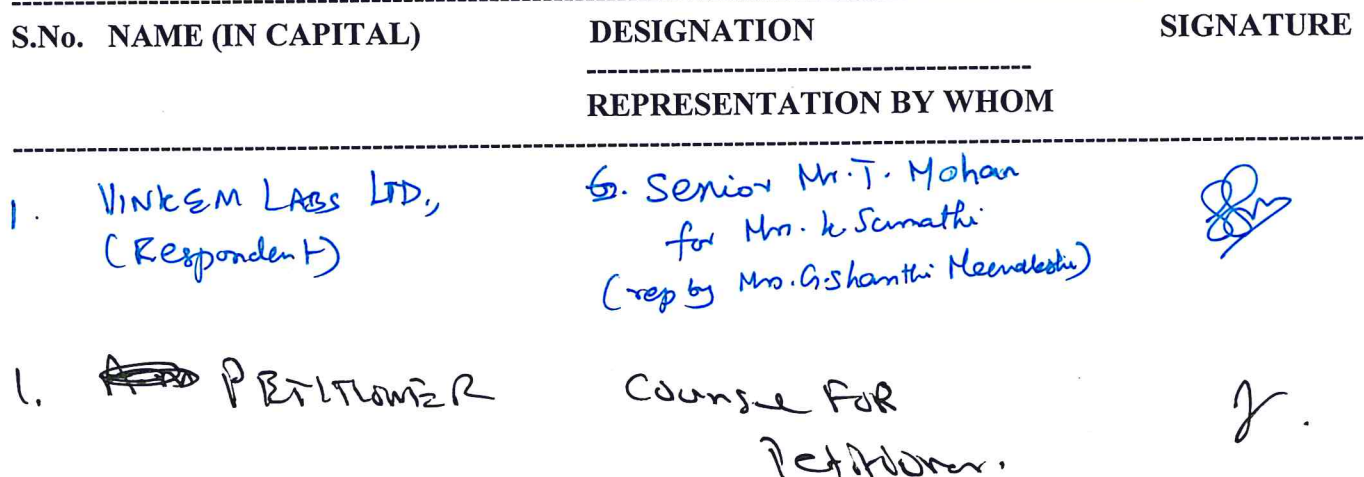 S.No. NAME (IN CAPITAL) DESIGNATION SIGNATURE
REPRESENTATION BY WHOM
1. VINKEM LABS LTD., Senior Mr. T. Mohan
(Respondent) for Mrs. K Sumathi
(rep by Mrs. G. Shanthi Meenakshi)
1. PETITIONER Counsel FOR
Petitioner.